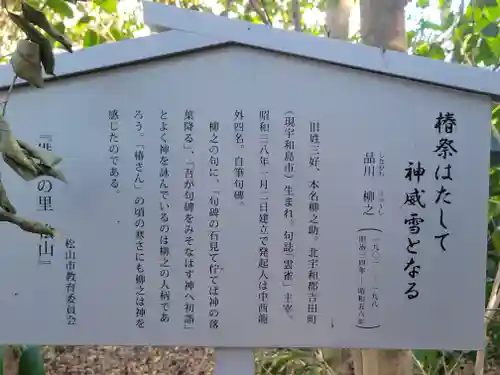 椿祭はたして
神威雪となる
しながわ りゅうし
品川 柳之(一九〇一――一九八一)
(明治三四年――昭和五六年)
旧姓三好、本名柳之助。北宇和郡吉田町
(現宇和島市)生まれ。句誌「雲雀」主宰。
昭和三八年一月二日建立で発起人は中西
外四名。自筆句碑。
柳之の句に、「句碑の石見て佇てば神の落
葉降る」、「吾が句碑をみそなはす神へ初詣」
とよく神を詠んでいるのは柳之の人柄であ
ろう。「椿さん」の頃の寒さにも柳之は神を
感じたのである。
松山市教育委員会
『俳句の里 松山』